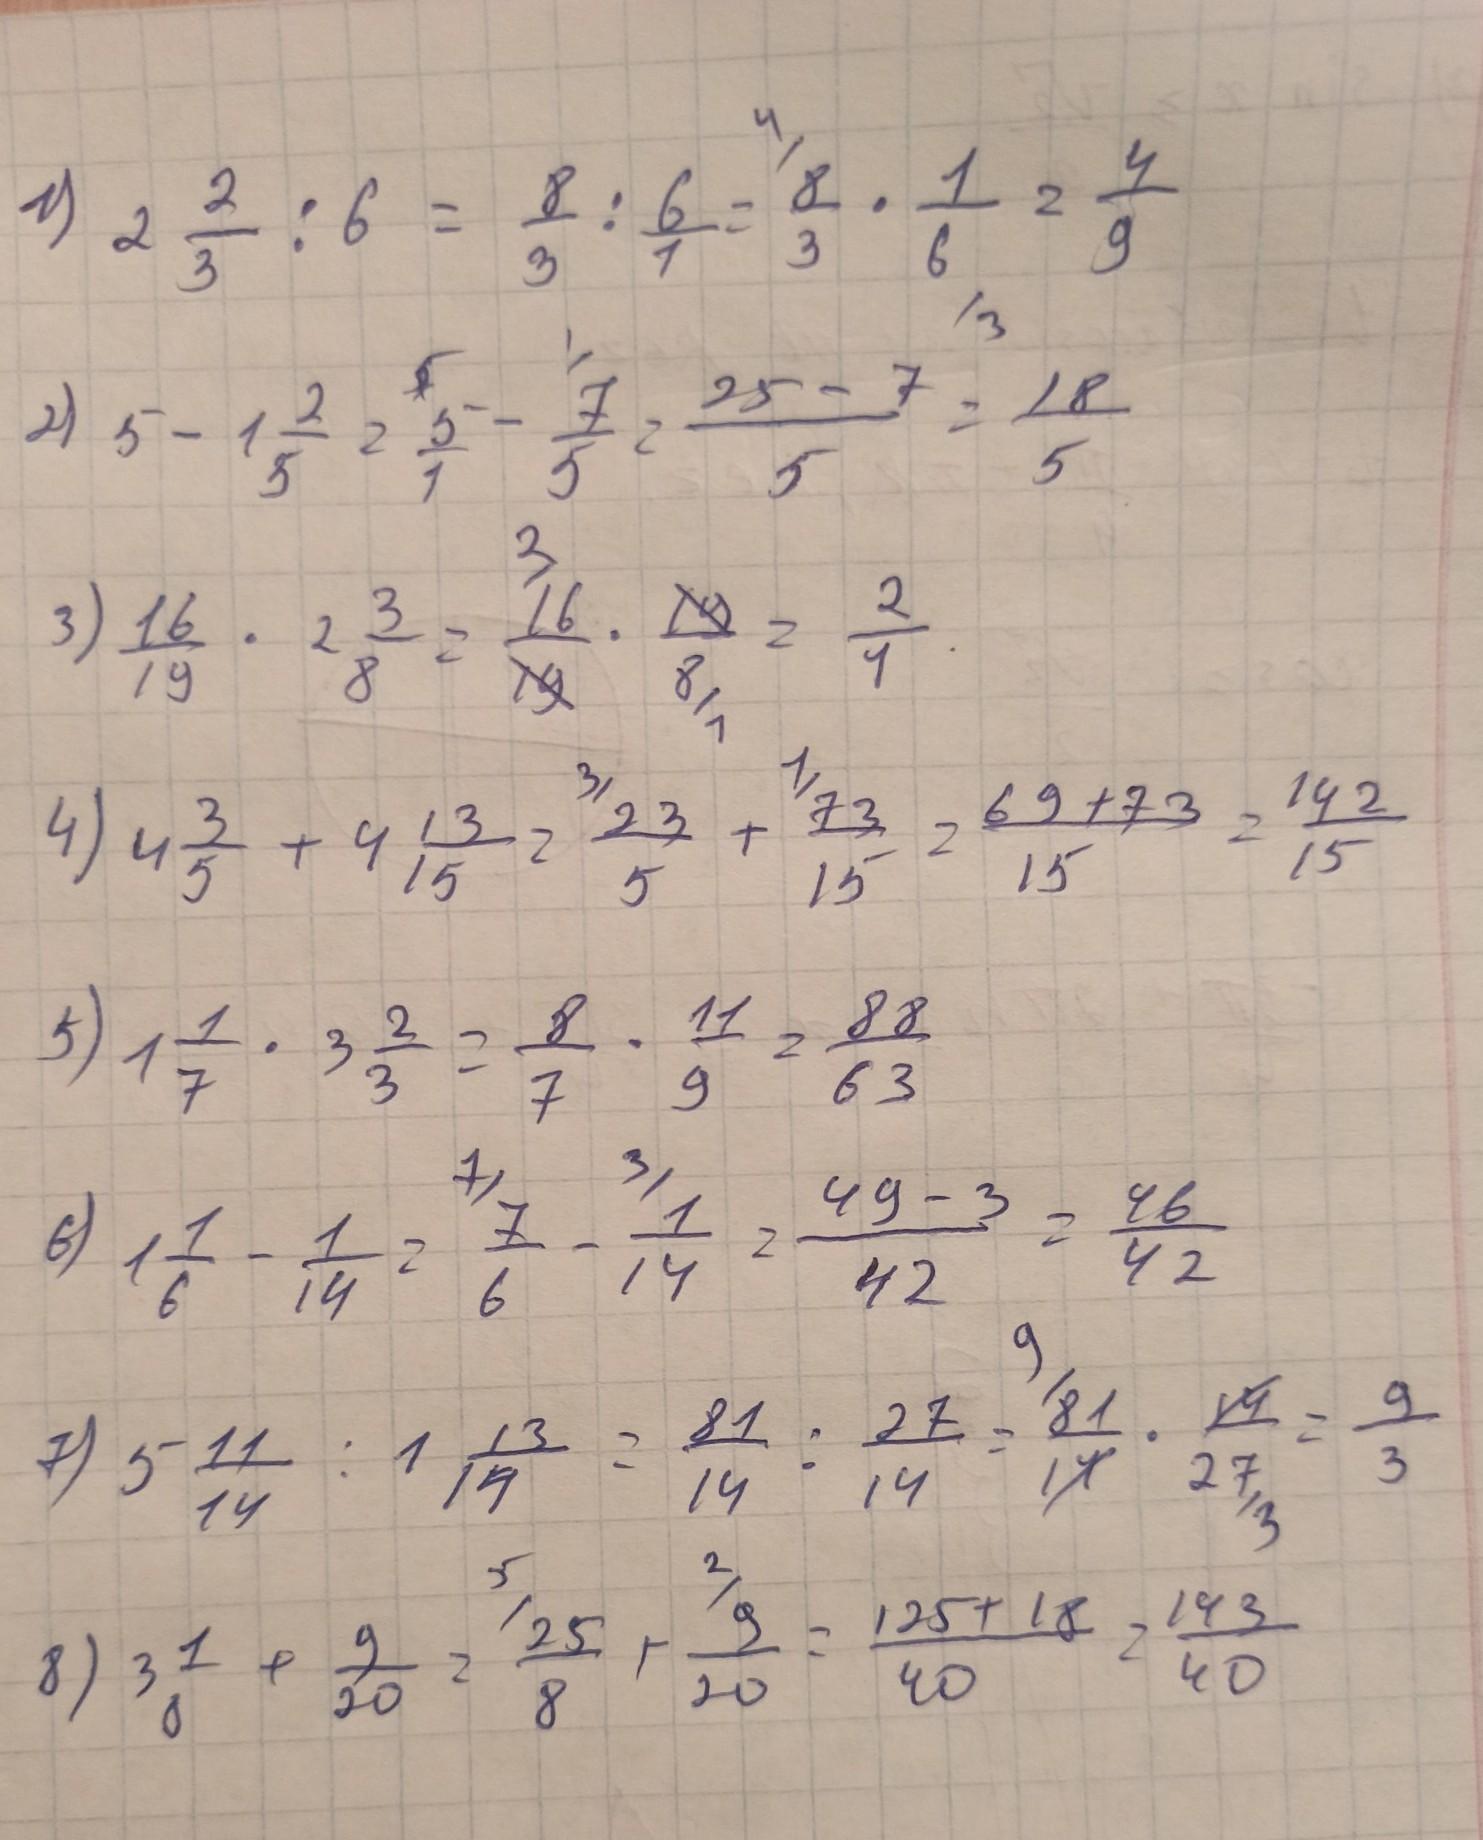 1) 2 2/3 : 6 = 8/3 : 6/1 = 4/ 8/3 · 1/6 /3 = 4/9
2) 5 - 1 2/5 = 5 5/1 - 1/ 7/5 = 25-7/5 = 18/5
3) 16/19 · 2 3/8 = 2/ 16/19 · 19/8 /1 = 2/1.
4) 4 3/5 + 4 13/15 = 3/ 23/5 + 1/ 73/15 = 69+73/15 = 142/15
5) 1 1/7 · 3 2/3 = 8/7 · 11/9 = 88/63
6) 1 1/6 - 1/14 = 7/ 7/6 - 3/ 1/14 = 49-3/42 = 46/42
7) 5 11/14 : 1 13/14 = 81/14 : 27/14 = 9/ 81/14 · 14/27 /3 = 9/3
8) 3 1/8 + 9/20 = 5/ 25/8 + 2/ 9/20 = 125+18/40 = 143/40